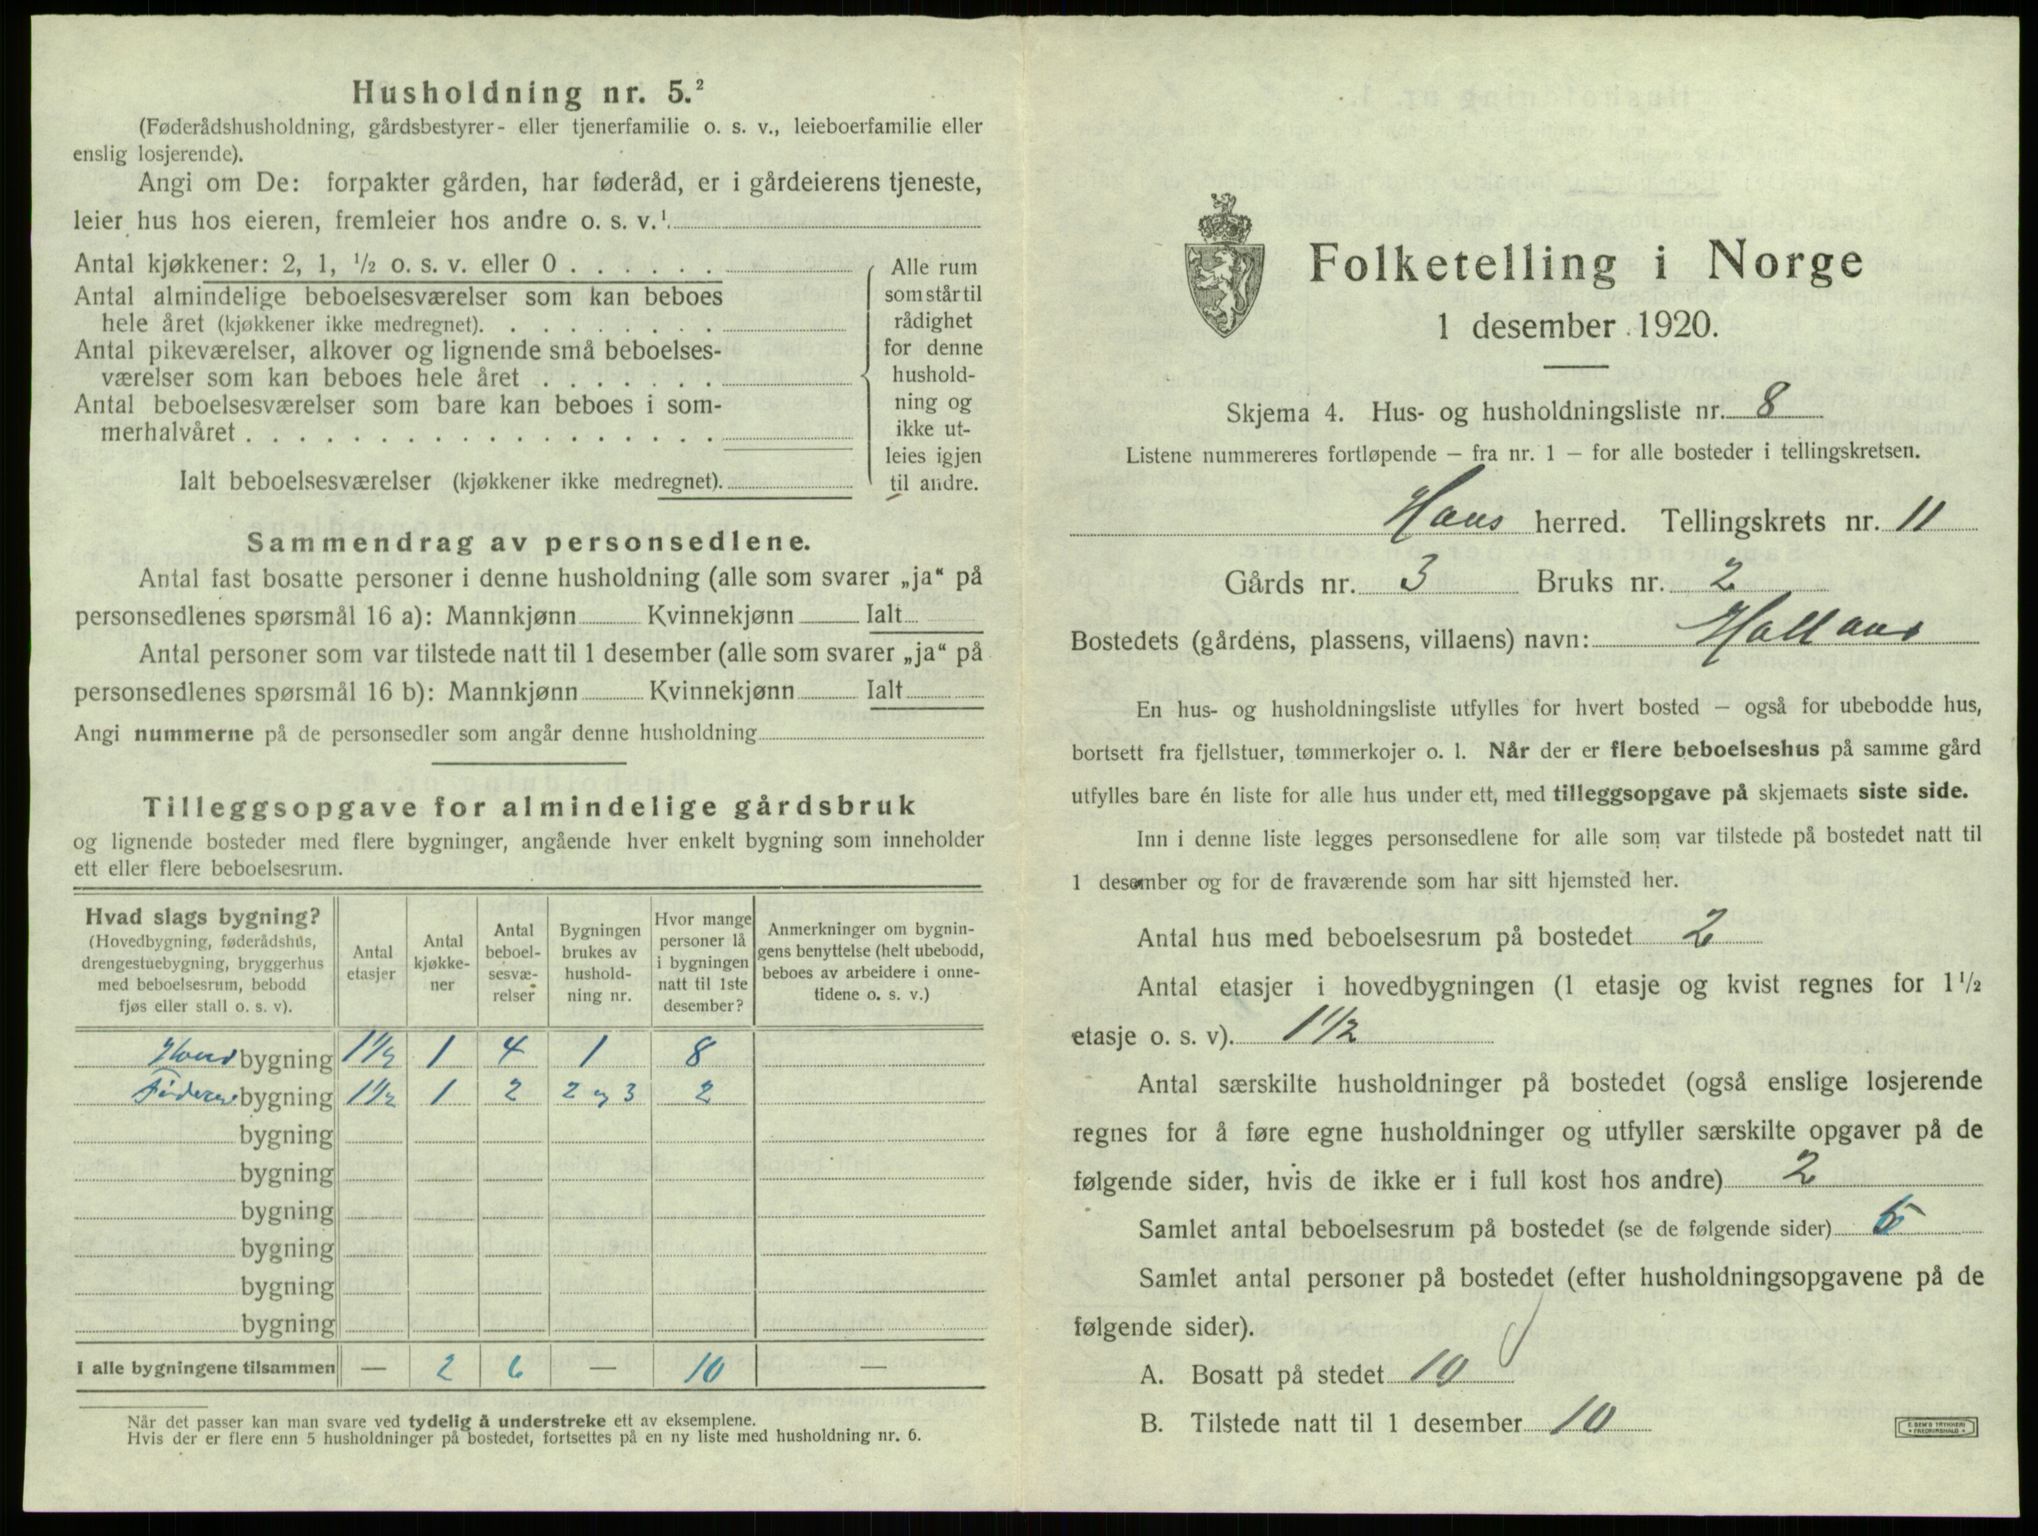 Husholdning nr. 5.²
(Føderådshusholdning, gårdsbestyrer- eller tjenerfamilie o. s. v., leieboerfamilie eller
enslig losjerende).
Angi om De: forpakter gården, har føderåd, er i gårdeierens tjeneste,
leier hus hos eieren, fremleier hos andre o. s. v.¹
Antal kjøkkener: 2, 1, ½ o. s. v. eller 0
Antal almindelige beboelsesværelser som kan beboes
hele året (kjøkkener ikke medregnet).
Antal pikeværelser, alkover og lignende små beboelses-
værelser som kan beboes hele året
Antal beboelsesværelser som bare kan beboes i som-
merhalvåret
Ialt beboelsesværelser (kjøkkener ikke medregnet).
Alle rum
som står til
rådighet
for denne
hushold-
ning og
ikke ut-
leies igjen
til andre.
Sammendrag av personsedlene.
Antal fast bosatte personer i denne husholdning (alle som svarer „ja“ på
personsedlenes spørsmål 16 a): Mannkjønn Kvinnekjønn Ialt
Antal personer som var tilstede natt til 1 desember (alle som svarer „ja“ på
personsedlenes spørsmål 16 b): Mannkjønn Kvinnekjønn Ialt
Angi nummerne på de personsedler som angår denne husholdning
Tilleggsopgave for almindelige gårdsbruk
og lignende bosteder med flere bygninger, angående hver enkelt bygning som inneholder
ett eller flere beboelsesrum.
Hvad slags bygning?
(Hovedbygning, føderådshus,
drengestuebygning, bryggerhus
med beboelsesrum, bebodd
fjøs eller stall o. s. v).
Antal
etasjer
Antal
kjøkke-
ner
Antal
beboel-
sesvæ-
relser
Bygningen
brukes av
hushold-
ning nr.
Hvor mange
personer lå
i bygningen
natt til 1ste
desember?
Anmerkninger om bygnin-
gens benyttelse (helt ubebodd,
beboes av arbeidere i onne-
tidene o. s. v.)
bygning 1½ 1 4 1 8
bygning 1½ 1 2 2 og 3 2
bygning
bygning
bygning
bygning
bygning
bygning
I alle bygningene tilsammen — 2 6 — 10 —
Når det passer kan man svare ved tydelig å understreke ett av eksemplene.
Hvis der er flere enn 5 husholdninger på bostedet, fortsettes på en ny liste med husholdning nr. 6.
Folketelling i Norge
1 desember 1920.
Skjema 4. Hus- og husholdningsliste nr. 8
Listene nummereres fortløpende – fra nr. 1 – for alle bosteder i tellingskretsen.
Haus herred. Tellingskrets nr. 11
Gårds nr. 3 Bruks nr. 2
Bostedets (gårdens, plassens, villaens) navn:
En hus- og husholdningsliste utfylles for hvert bosted – også for ubebodde hus,
bortsett fra fjellstuer, tømmerkojer o. l. Når der er flere beboelseshus på samme gård
utfylles bare én liste for alle hus under ett, med tilleggsopgave på skjemaets siste side.
Inn i denne liste legges personsedlene for alle som var tilstede på bostedet natt til
1 desember og for de fraværende som har sitt hjemsted her.
Antal hus med beboelsesrum på bostedet 2
Antal etasjer i hovedbygningen (1 etasje og kvist regnes for 1½
etasje o. s. v). 1½
Antal særskilte husholdninger på bostedet (også enslige losjerende
regnes for å føre egne husholdninger og utfyller særskilte opgaver på de
følgende sider, hvis de ikke er i full kost hos andre) 2
Samlet antal beboelsesrum på bostedet (se de følgende sider)
Samlet antal personer på bostedet (efter husholdningsopgavene på de
følgende sider).
A. Bosatt på stedet 10
B. Tilstede natt til 1 desember 10